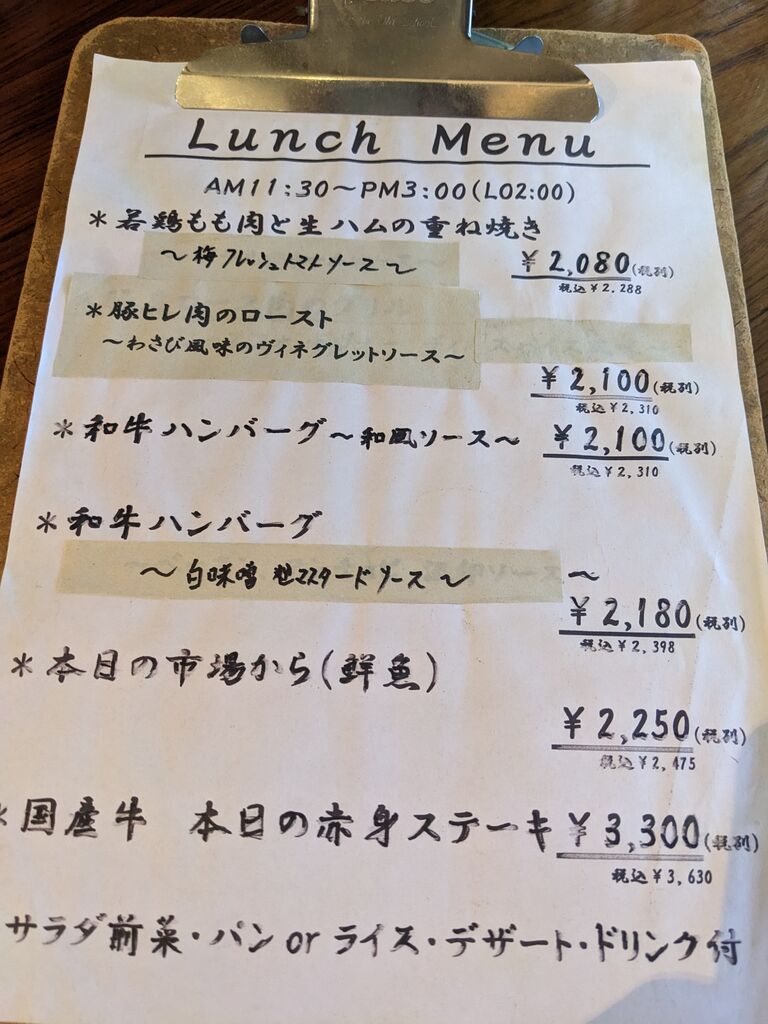 Lunch Menu
AM11:30〜PM3:00(LO2:00)
*若鶏もも肉と生ハムの重ね焼き
〜梅フレッシュトマトソース〜
¥2,080(税別)
税込¥2,288
*豚ヒレ肉のロースト
〜わさび風味のヴィネグレットソース〜
¥2,100(税別)
税込¥2,310
*和牛ハンバーグ〜和風ソース〜 ¥2,100(税別)
税込¥2,310
*和牛ハンバーグ
〜白味噌 粒マスタードソース〜 〜
¥2,180(税別)
税込¥2,398
*本日の市場から(鮮魚)
¥2,250(税別)
税込¥2,475
*国産牛 本日の赤身ステーキ ¥3,300(税別)
税込¥3,630
サラダ前菜・パン or ライス・デザート・ドリンク付